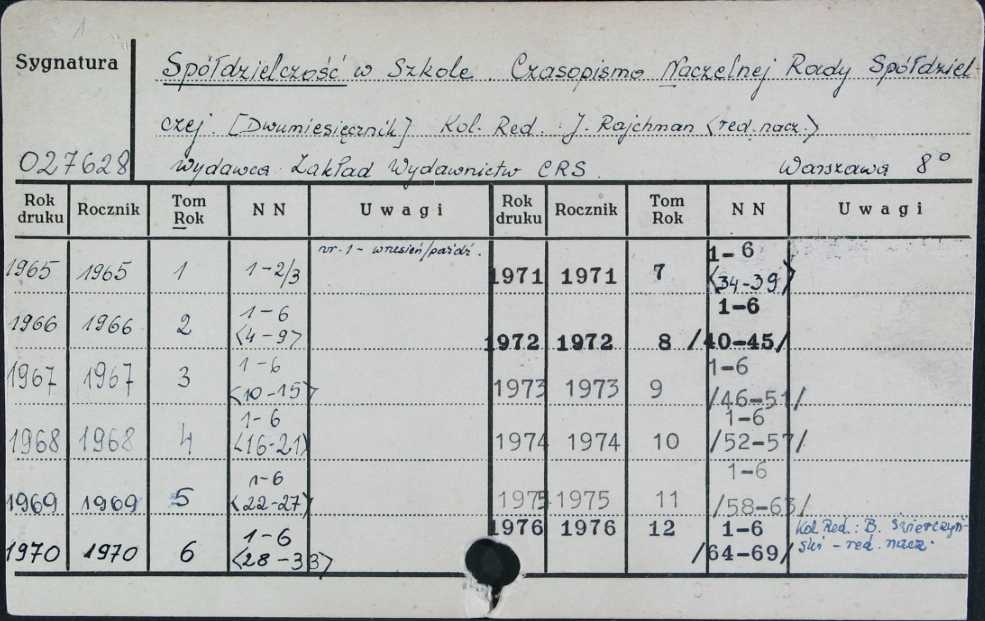 1
Sygnatura
Spółdzielczość w Szkole. Czasopismo Naczelnej Rady Spółdziel
czej. [Dwumiesięcznik] Kol. Red. J. Rajchman <red. nacz.>
027628 Wydawca Zakład Wydawnictw CRS. Warszawa 8°
Rok druku Rocznik Tom Rok NN Uwagi Rok druku Rocznik Tom Rok NN Uwagi
1965 1965 1 1-2/3 nr. 1 - wrzesień/paźdź. 1971 1971 7 1-6 <34-39>
1966 1966 2 1-6 <4-9> 1972 1972 8 1-6 /40-45/
1967 1967 3 1-6 <10-15> 1973 1973 9 1-6 /46-51/
1968 1968 4 1-6 <16-21> 1974 1974 10 1-6 /52-57/
1969 1969 5 1-6 <22-27> 1975 1975 11 1-6 /58-63/
1970 1970 6 1-6 <28-33> 1976 1976 12 1-6 /64-69/ Kol. Red.: B. Świerczyń-
ski - red. nacz.